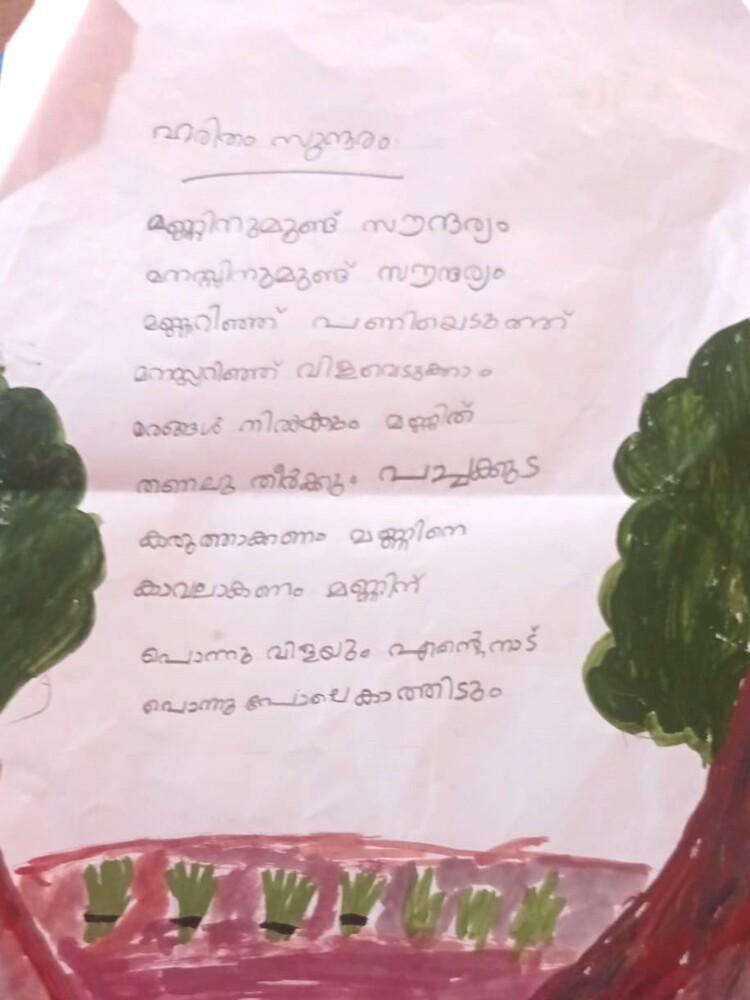 ഹരിതം സുന്ദരം
മണ്ണിനുമുണ്ട് സൗന്ദര്യം
മനസ്സിനുമുണ്ട് സൗന്ദര്യം
മണ്ണറിഞ്ഞ് പണിയെടുത്ത്
മനസ്സറിഞ്ഞ് വിളവെടുക്കാം
മരങ്ങൾ നിൽക്കും മണ്ണിത്
തണലു തീർക്കും പച്ചക്കുട
കരുത്താക്കണം മണ്ണിനെ
കാവലാകണം മണ്ണിന്
പൊന്നു വിളയും എന്റെനാട്
പൊന്നു പോലെ കാത്തിടും